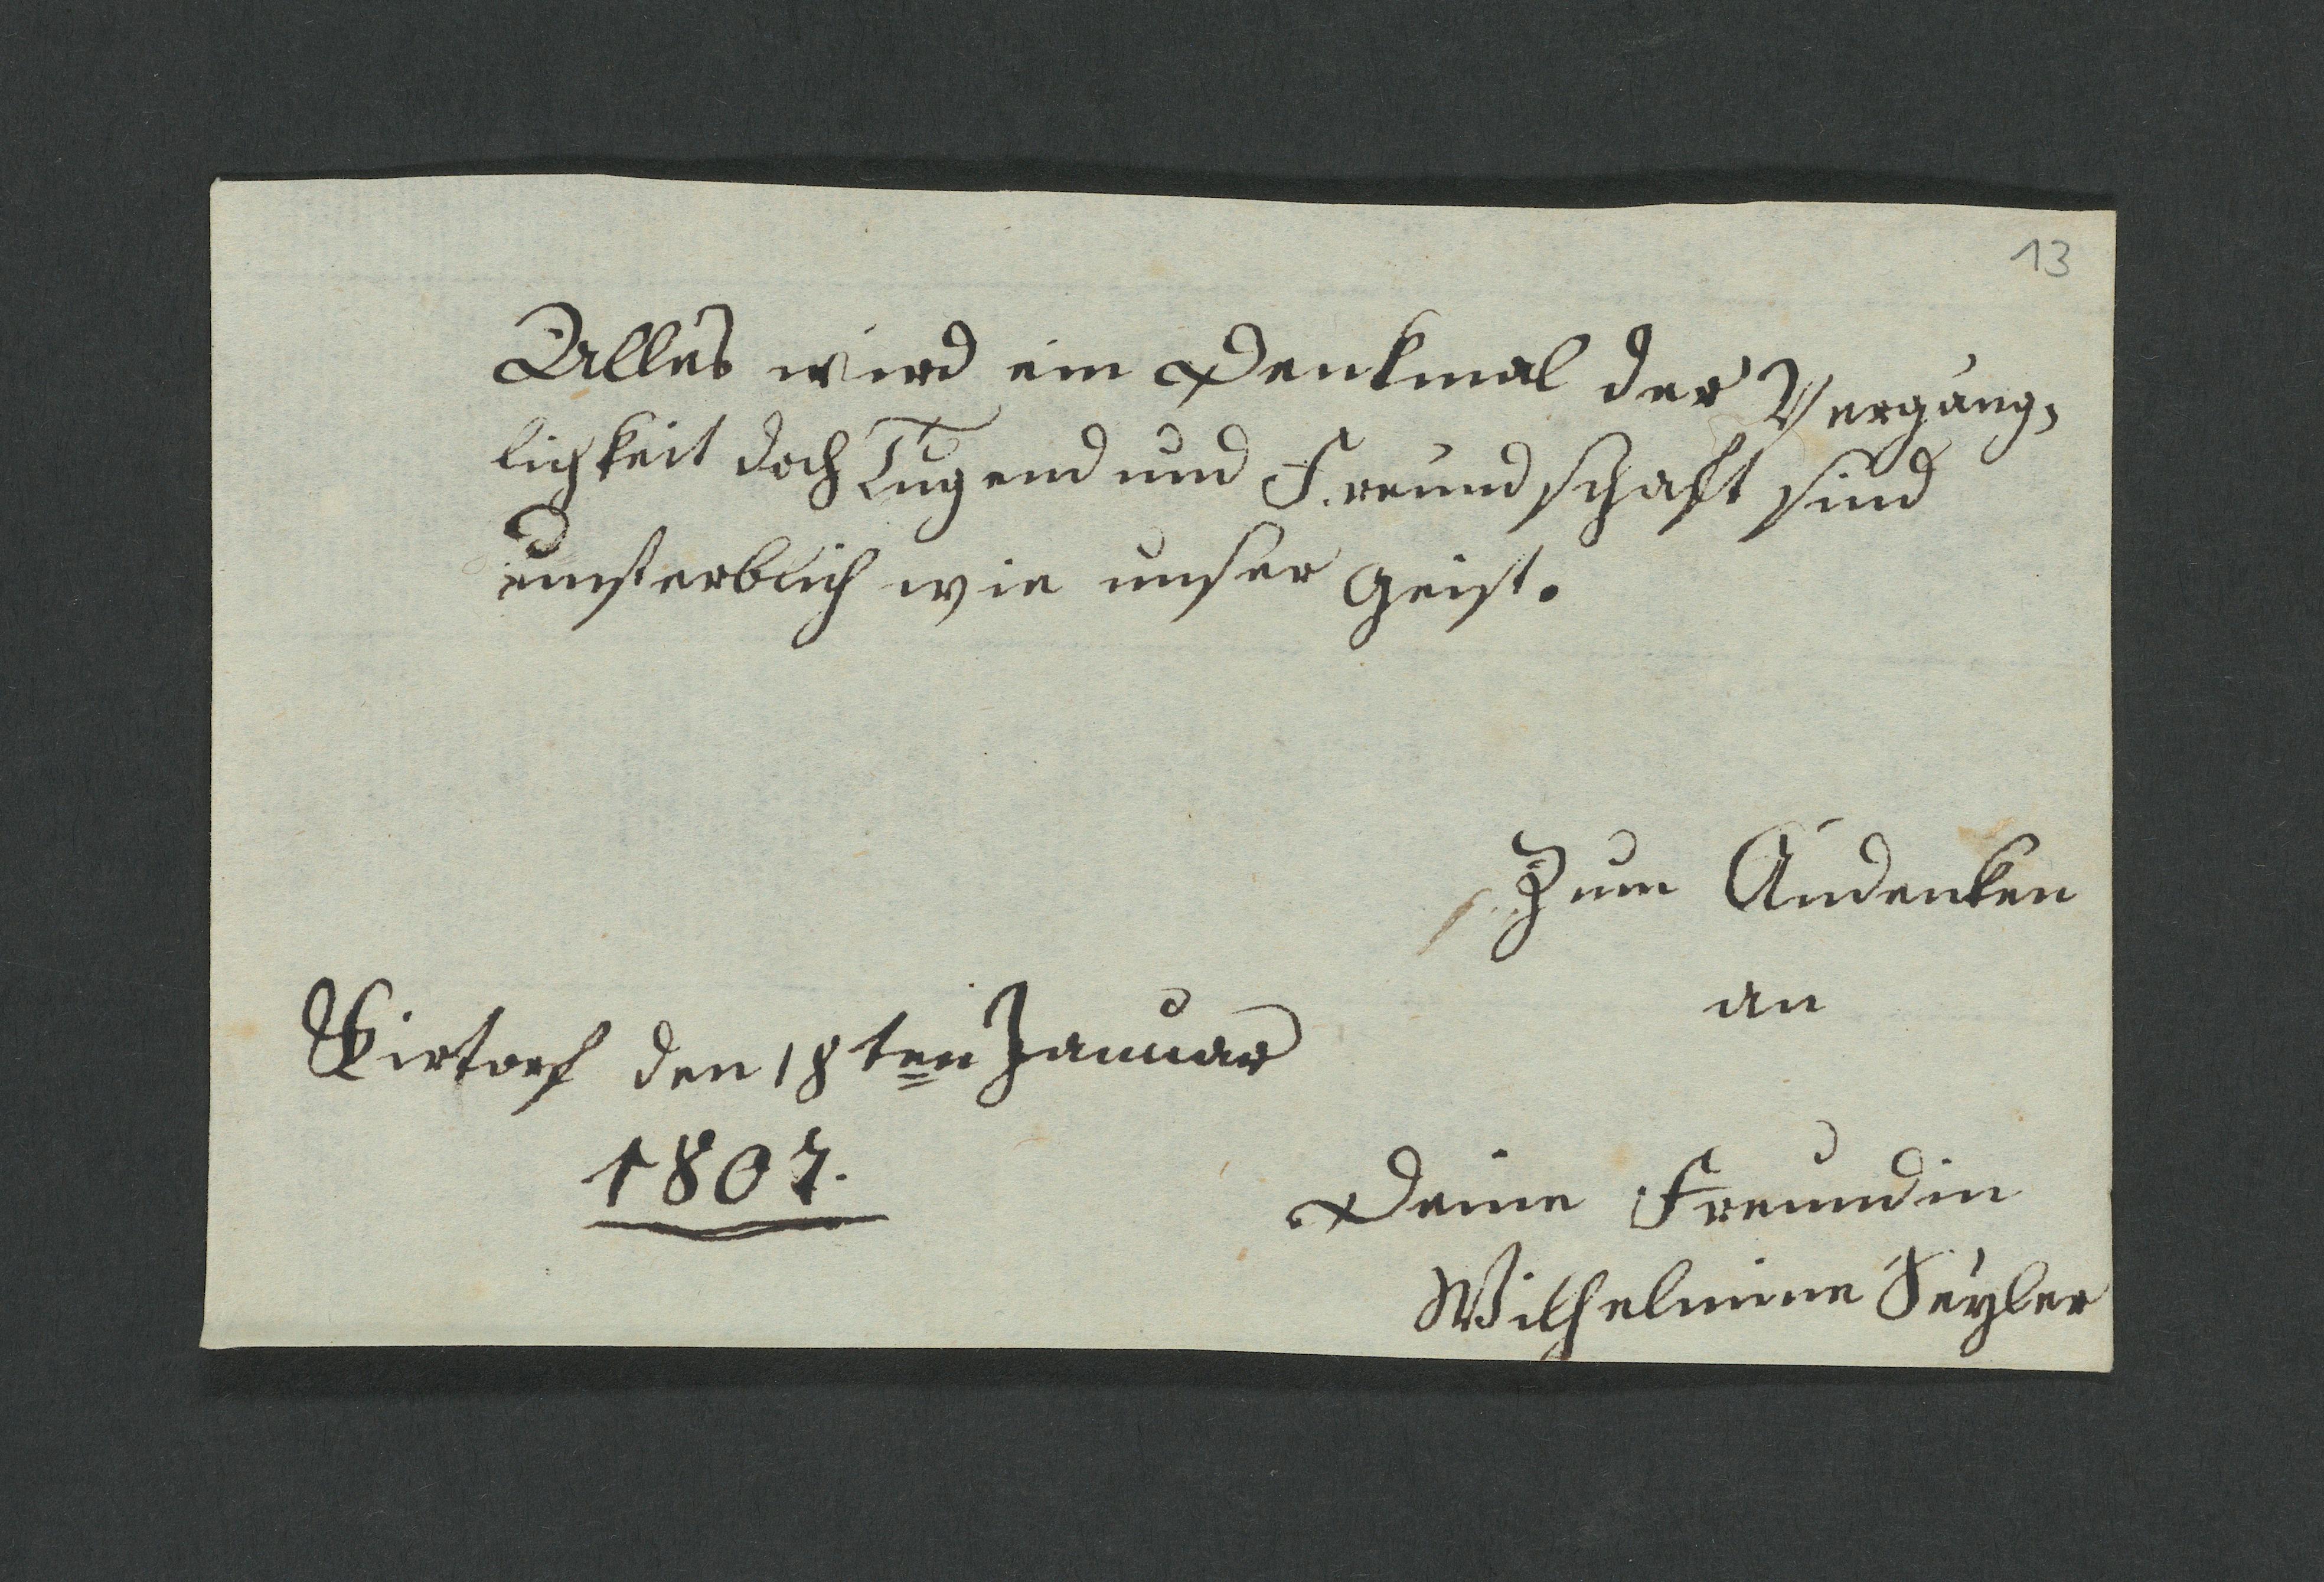 13
Alles wird ein Denkmal der Vergäng-
lichkeit doch Tugend und Freundschaft sind
unsterblich wie unser Geist.
Zum Andenken
an
den 18ten Januar
1807.
Deine Freundin
Wilhelmine Seyler